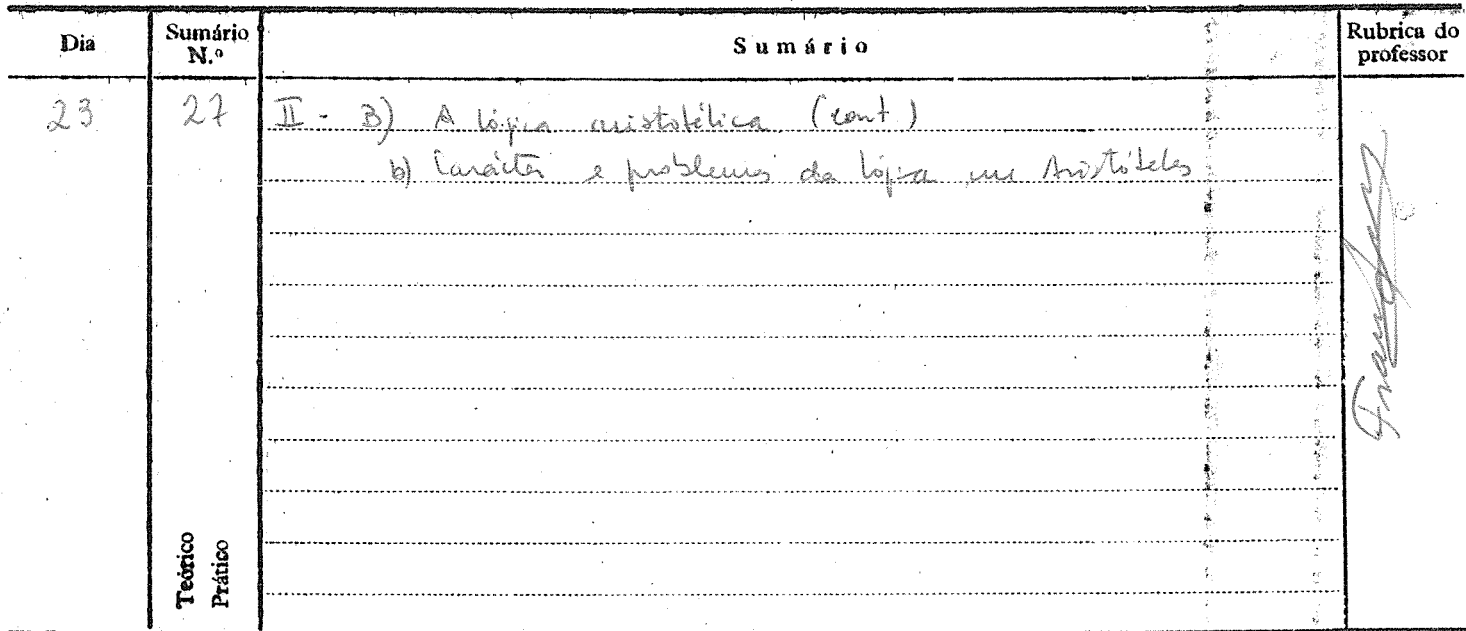 Dia Sumário N.º Sumário Rubrica do professor
23 27 II - B) A lógica aristotélica (cont.)
b) Carácter e problemas da lógica em Aristóteles
Teórico
Prático